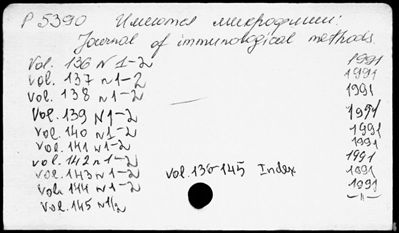 P 5390 Имеются микрофиши:
Journal of immunological methods.
Vol. 136 N 1-2 1991
vol. 137 n 1-2 1991
vol. 138 n 1-2 1991
vol. 139 N 1-2 1991
vol. 140 n 1-2 1991
vol. 141 n 1-2 1991
vol. 142 n 1-2 1991
vol. 143 n 1-2 vol. 136-145 Index 1991
vol. 144 n 1-2 1991
vol. 145 n 1/2 -"-